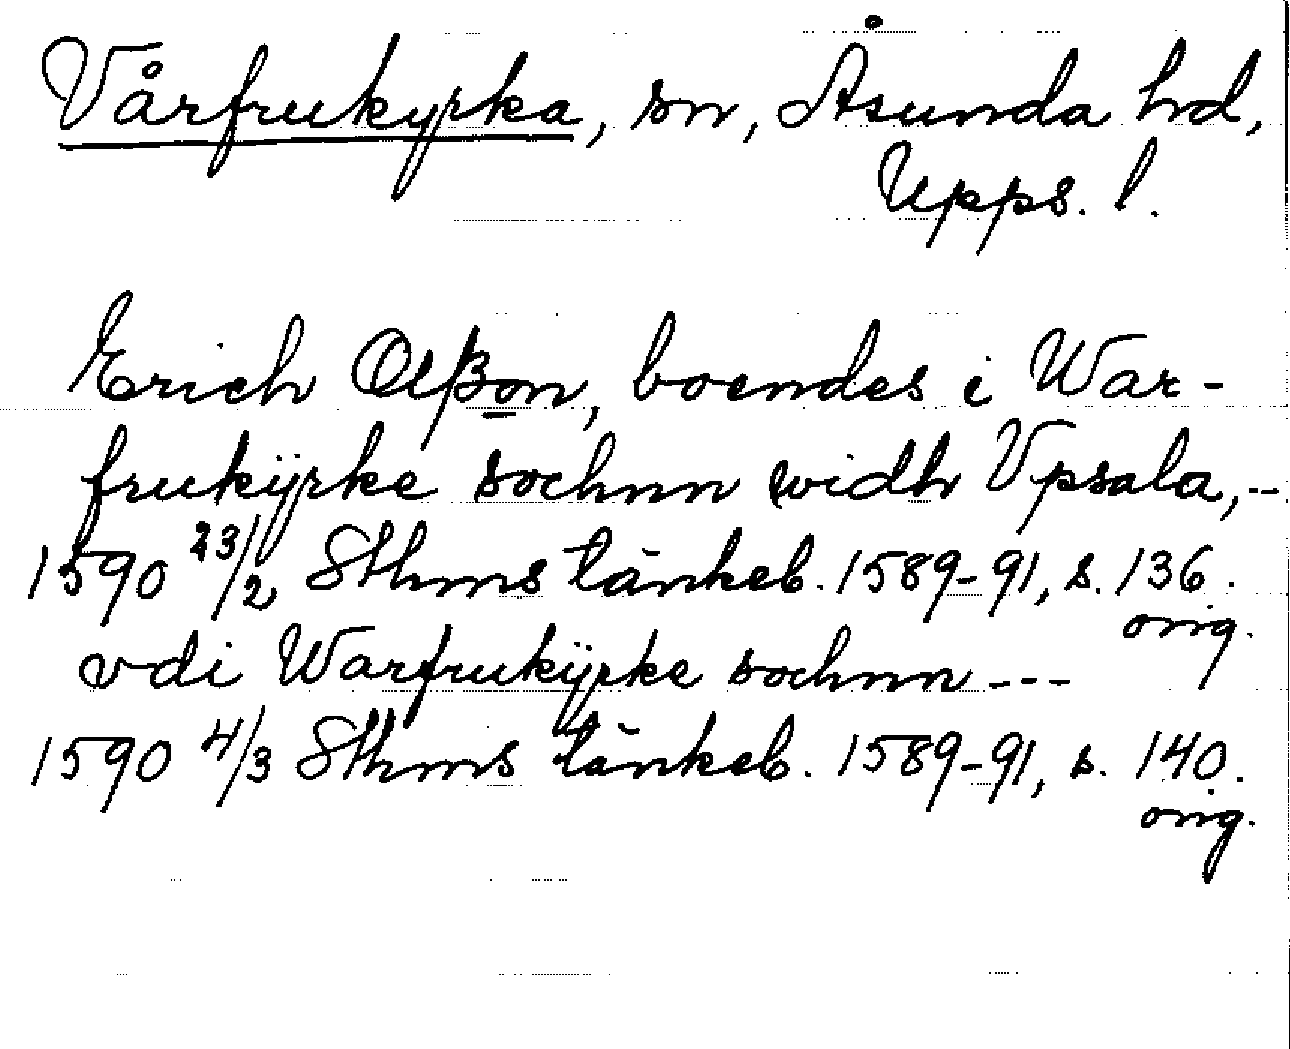 Vårfrukyrka, sn, Åsunda hd,
Upps. l.
Erich Olßon, boendes i War-
frukÿrke sochnn widh Vpsala,--
1590 23/2 Sthms tänkeb. 1589-91, s. 136.
orig.
vdi Warfrukÿrke sochnn---
1590 4/3 Sthms tänkeb. 1589-91, s. 140.
orig.